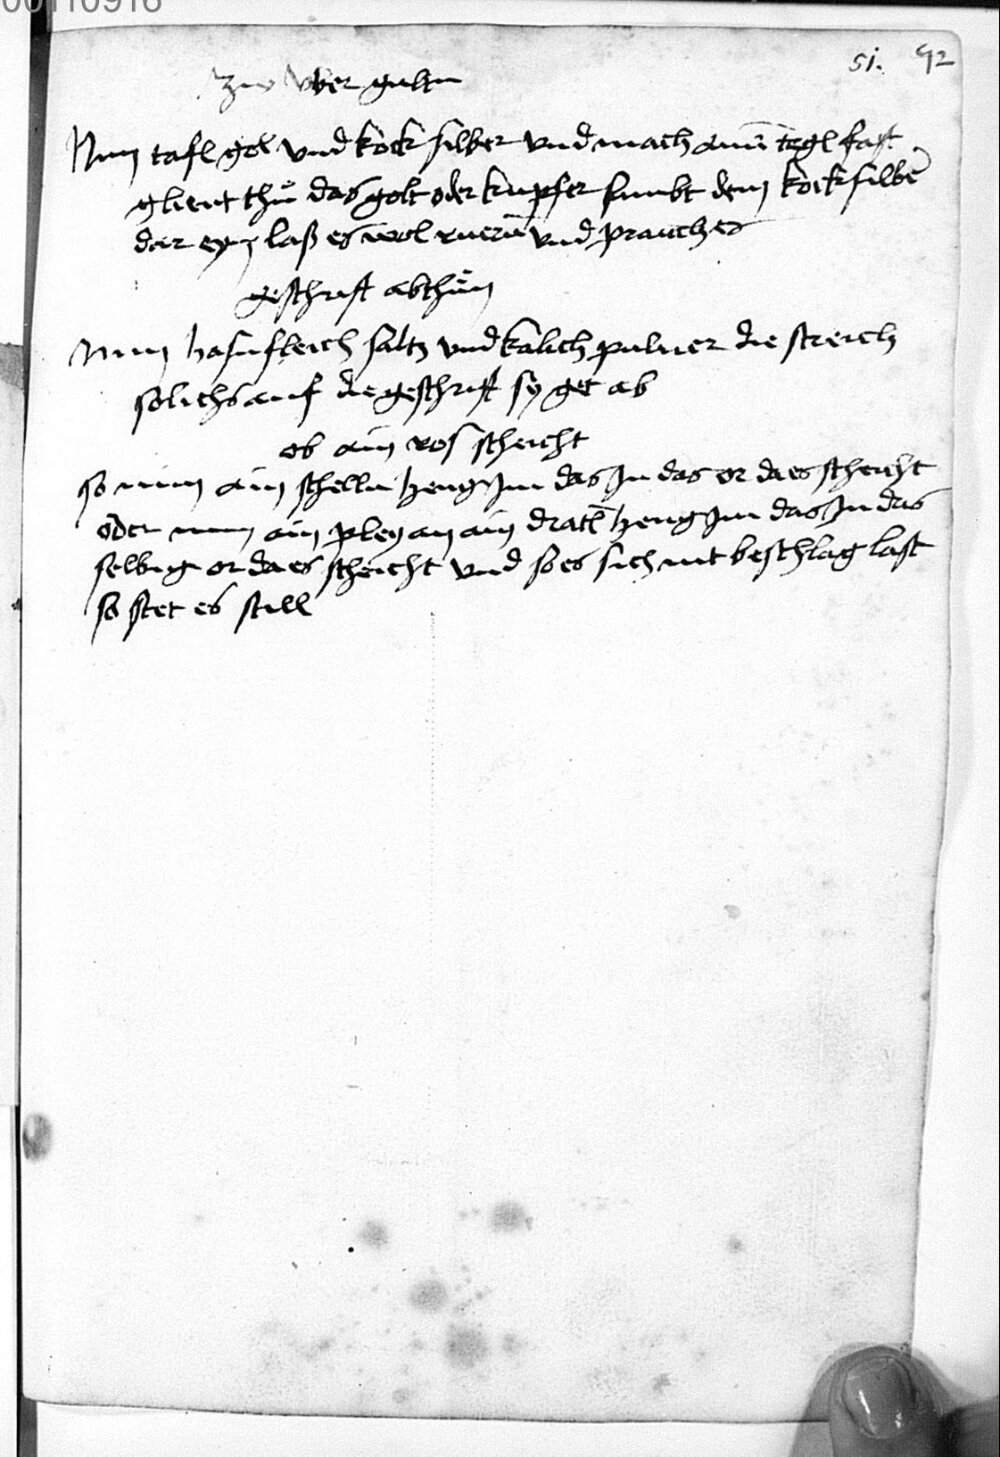 00110918
51. 92
Zw vber gulten
Nym tafl gol vnd kocksilber vnd mach ainn tegl fast
glient thů das golt oder kupfer sambt dem kocksilber
dar eyn laß es wol ruern vnd prauch es
geschrift abthůn
Nym hasnfleich saltz vnd kalich puluer die streich
solichs auf die geschrift sy get ab
ob ain ros scheicht
so nym ain schelln heng im das in das or da es scheicht
oder nym ain pley an ain dratl heng im das in das
selbig or da es scheicht vnd so es sich nit beschlag last
so stet es still